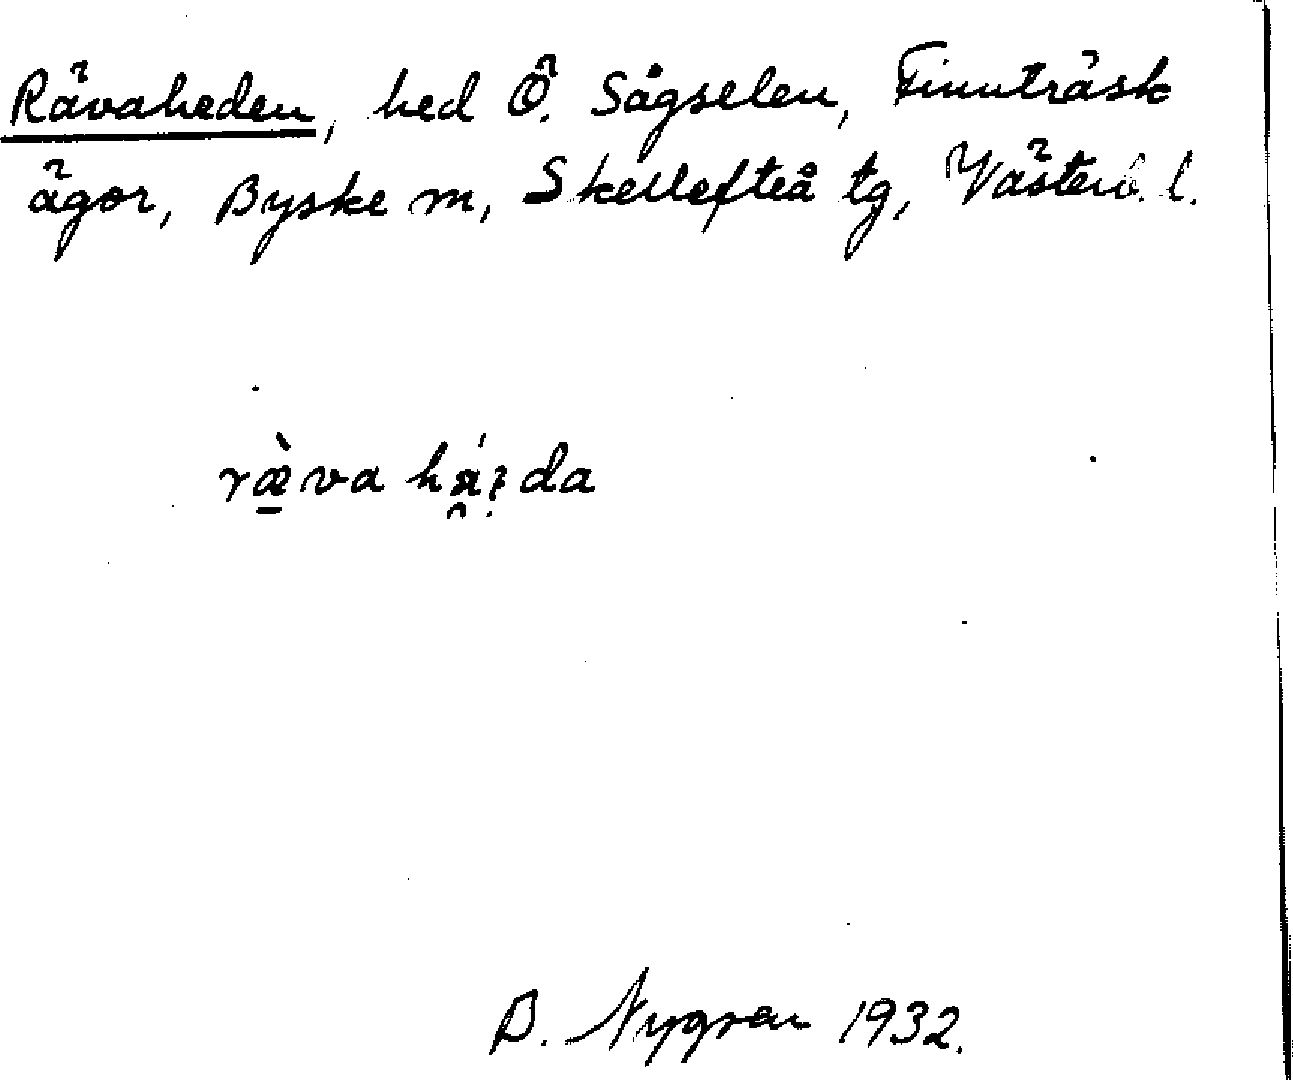 Rävaheden, hed Ö. Sågselen, Finnträsk
ägor, Byske sn, Skellefteå tg, Västerb. l.
ræ̀va
B. Nygren 1932.